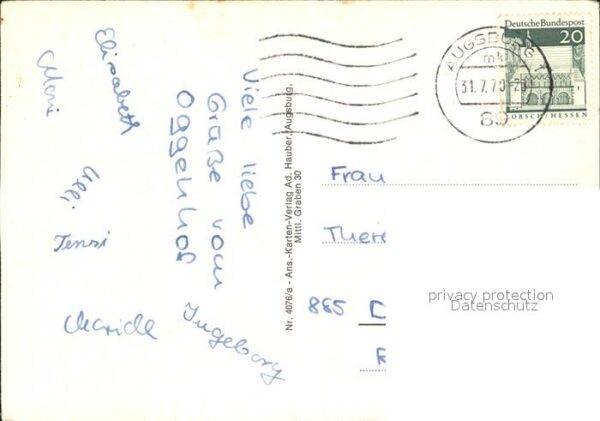 Viele liebe
Grüße vom
Oggenhof
Ingeborg
Elisabeth
Resi
Tenzi
Nr. 4076/a - Ans.-Karten-Verlag Ad. Hauber, Augsburg,
Mittl. Graben 30
Deutsche Bundespost
20
LORSCH/HESSEN
AUGSBURG
31.7.70-20
89
Frau
There
885 D
privacy protection
Datenschutz